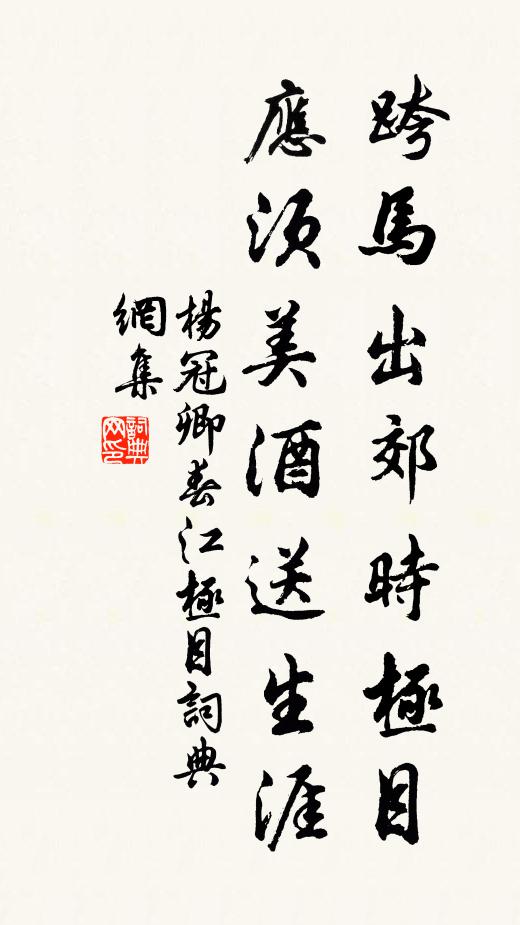 跨馬出郊時極目
應須美酒送生涯
楊冠卿春江極目詞典
網集
詞典
网印